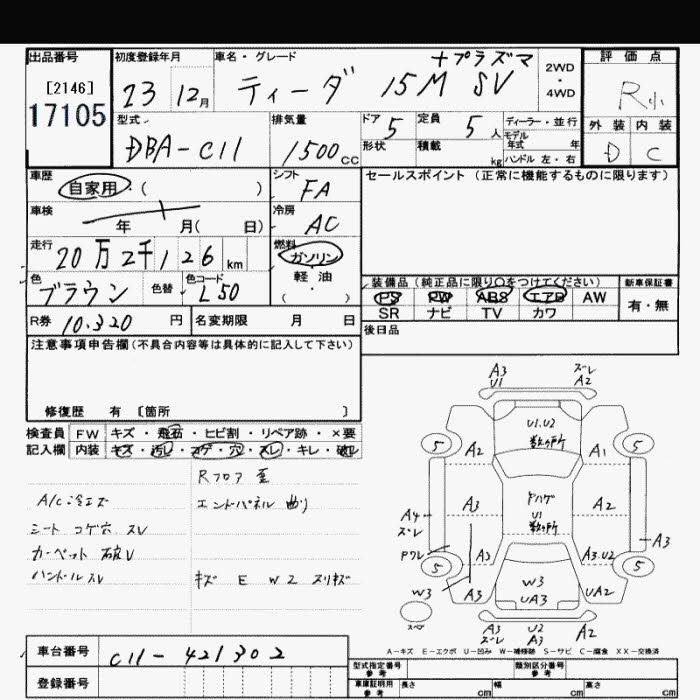 出品番号 初度登録年月 車名・グレード +プラズマ 2WD・4WD 評価点
[2146]
17105 23 12月 ティーダ 15M SV R小
型式 排気量 ドア 定員 ディーラー・並行 外装 内装
DBA-C11 1500cc 5 5人 モデル年式 年 D C
形状 積載 kg ハンドル 左・右
車歴 自家用・( ) シフト FA セールスポイント (正常に機能するものに限ります)
車検 年 月( 日) 冷房 AC
走行 20万2千126km 燃料 ガソリン
軽・油
( )
色 ブラウン 色替 色コード L50 装備品 (純正品に限り○をつけてください) 新車保証書
PS PW ABS エアB AW 有・無
SR ナビ TV カワ
R券 10,320円 名変期限 月 日 後日品
注意事項申告欄(不具合内容等は具体的に記入して下さい)
修復歴 有 [箇所 ]
検査員 FW キズ・飛石・ヒビ割・リペア跡・×要
記入欄 内装 キズ・汚レ・コゲ・穴・スレ・キレ・破レ
Rフロア 歪
A/C冷エズ エンドパネル 曲り
シート コゲ穴 スレ
カーペット 破レ
ハンドルスレ キズ E W2 スリキズ
A3 U1 ズレ A2
U1.U2 数ヶ所
5 A2 A1 5
A4 ズレ A3 ドハゲ U1 数ヶ所 A2
Pワレ A3 A3.U2 A3
5 5
W3 A3 W3 UA3 UA2
スペア
A3 ズレ U2 A3 A2
A-キズ E-エクボ U-凹み W-補修跡 S-サビ C-腐食 XX-交換済
車台番号 C11-421302
型式指定番号 参考 類別区分番号 参考
登録番号 車庫証明用 参考 長さ cm 幅 cm 高さ cm